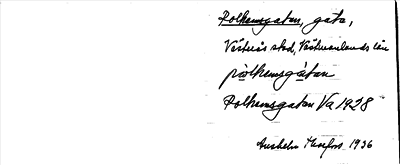 Polhemsgatan, gata,
Västerås stad, Västmanlands län
pòlhemsgàtan
Polhemsgatan Va 1928
1936